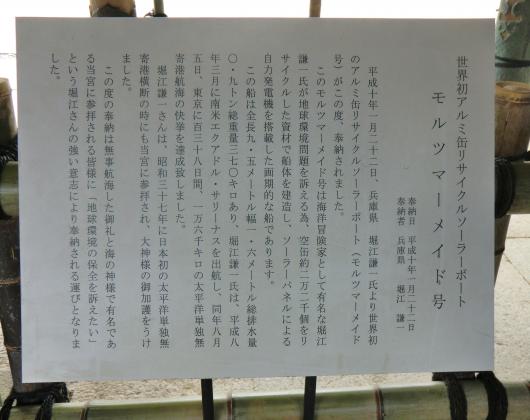 世界初アルミ缶リサイクルソーラーボート
モルツマーメイド号
奉納日 平成十年一月二十二日
奉納者 兵庫県 堀江 謙一
平成十年一月二十二日、兵庫県 堀江謙一氏より世界初
のアルミ缶リサイクルソーラーボート（モルツマーメイド
号）がこの度、奉納されました。
このモルツマーメイド号は海洋冒険家として有名な堀江
謙一氏が地球環境問題を訴える為、空缶約二万二千個をリ
サイクルした資材で船体を建造し、ソーラーパネルによる
自力発電機を搭載した画期的な船であります。
この船は全長九・五メートル幅一・六メートル総排水量
〇・九トン総重量三七〇キロあり、堀江謙一氏は、平成八
年三月に南米エクアドル・サリーナスを出航し、同年八月
五日、東京に百三十八日間、一万六千キロの太平洋単独無
寄港航海の快挙を達成致しました。
堀江謙一さんは、昭和三十七年に日本初の太平洋単独無
寄港横断の時にも当宮に参拝され、大神様の御加護をうけ
ました。
この度の奉納は無事航海した御礼と海の神様で有名であ
る当宮に参拝される皆様に「地球環境の保全を訴えたい」
という堀江さんの強い意志により奉納される運びとなりま
した。